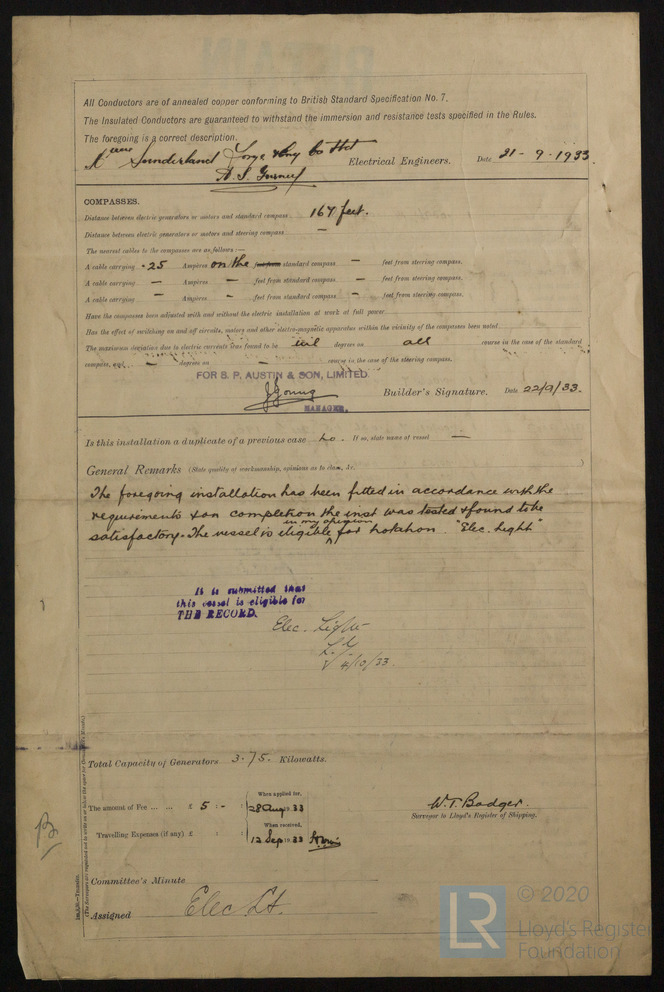 All Conductors are of annealed copper conforming to British Standard Specification No. 7.
The Insulated Conductors are guaranteed to withstand the immersion and resistance tests specified in the Rules.
The foregoing is a correct description.
Sunderland Forge & Eng Co Ltd Electrical Engineers. Date 21 - 9 - 1933.
COMPASSES.
Distance between electric generators or motors and standard compass 167 feet.
Distance between electric generators or motors and steering compass —
The nearest cables to the compasses are as follows :—
A cable carrying .25 Amperes on the standard compass — feet from steering compass.
A cable carrying — Amperes — feet from standard compass — feet from steering compass.
A cable carrying — Amperes — feet from standard compass — feet from steering compass.
Have the compasses been adjusted with and without the electric installation at work at full power
Has the effect of switching on and off circuits, motors and other electro-magnetic apparatus within the vicinity of the compasses been noted
The maximum deviation due to electric currents was found to be nil degrees on all course in the case of the standard
compass, and — degrees on — course in the case of the steering compass.
FOR S. P. AUSTIN & SON, LIMITED
J Young Builder's Signature. Date 22/9/33.
MANAGER.
Is this installation a duplicate of a previous case no. If so, state name of vessel —
General Remarks (State quality of workmanship, opinions as to class, &c. )
The foregoing installation has been fitted in accordance with the
requirements & on completion the inst was tested & found to be
in my opinion
satisfactory. The vessel is eligible for notation "Elec. Light"
It is submitted that
this vessel is eligible for
THE RECORD.
Elec. Light
4/10/33.
Total Capacity of Generators 3.75. Kilowatts.
The amount of Fee ... ... £ 5 : - :
When applied for,
28 Aug 1933
Travelling Expenses (if any) £ : :
When received,
12 Sep 1933
W. T. Badger.
Surveyor to Lloyd's Register of Shipping.
Committee's Minute
Assigned Elec Lt.
LR
© 2020
Lloyd's Register
Foundation